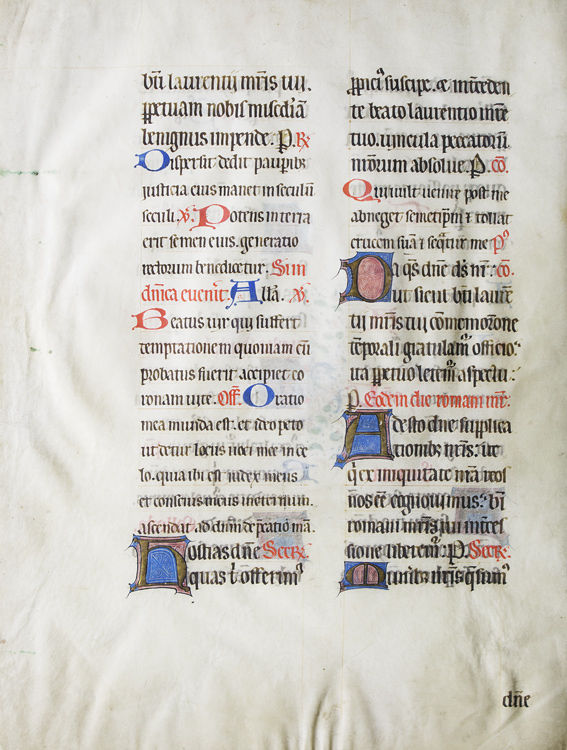 bti laurentii mris tui.
ppetuam nobis miscdiā
benignus impende. P. R̷
Dispersit dedit paupib;
iusticia eius manet in seculū
seculi. v̷. Potens in terra
erit semen eius. generatio
rectorum benedicetur. Si in
dn̄ica euen̄it. Alla. v̷.
Beatus uir qui suffert
temptatione m quoniam cū
probatus fuerit accipiet co
ronam uite. Off. Oratio
mea munda est. et ideo peto
ut detur locus uoci mee in ce
lo. quia ibi est iudex meus
et conscius meus in excelsis
ascendat ad dn̄m deprecatio mā.
Hostias dn̄e Secr̄.
quas t' offerim⁹
ppici⁹ suscipe. et interceden
te beato laurentio mr̄e
tuo. uincula peccatorū
nr̄orum absolue. P. cō.
Qui uult uenire post me
abneget semetip̄m et tollat
crucem suā et seq̄tur me P⁹
Da q̄s dn̄e ds̄ nr̄: cō.
ut sicut bt̄i laurē
tii mr̄is tui com̄emorōne
tēporali gratulam̄ officio:
ita ppetuo letem̄ aspectu:
P. Eodem die romani mr̄:
Adesto dn̄e supplica
tionib; nr̄is: ut
q̄ ex iniquitate nr̄ā reos
nos eē cognoscimus: bt̄i
romani mr̄is tui intces
sione liberem̄. P. Secr̄:
Munib; nr̄is q̄sum⁹
dn̄e